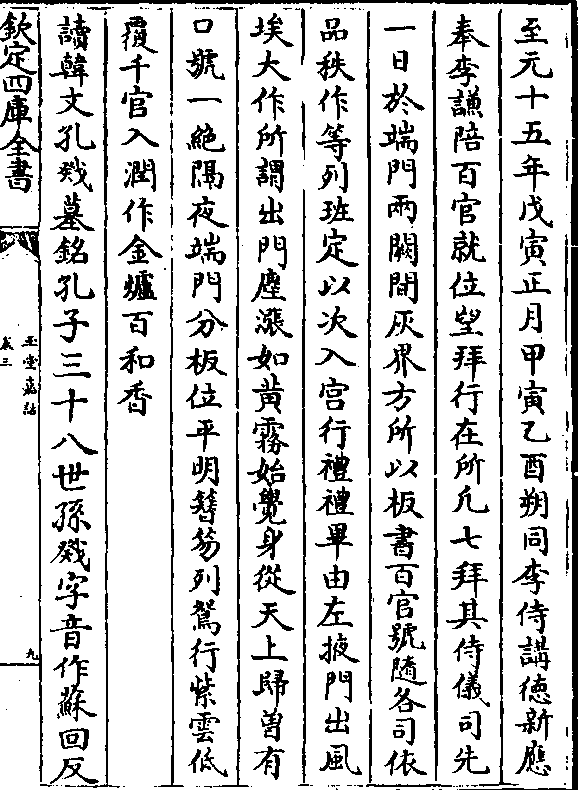 至元十五年戊寅正月甲寅乙酉朔同李侍講徳新應
奉李謙陪百官就位望拜行在所凡七拜其侍儀司先
一日於端門兩闕間灰界方所以板書百官號隨各司依
品秩作等列班定以次入宫行禮禮畢由左掖門出風
埃大作所謂出門塵漲如黄霧始覺身從天上歸曽有
口號一絶隔夜端門分板位平明簪笏列鴛行紫雲低
覆千官入潤作金爐百和香
讀韓文孔戣墓銘孔子三十八世孫戣字音作蘇回反
欽定四庫全書
玉堂嘉話
卷三
九